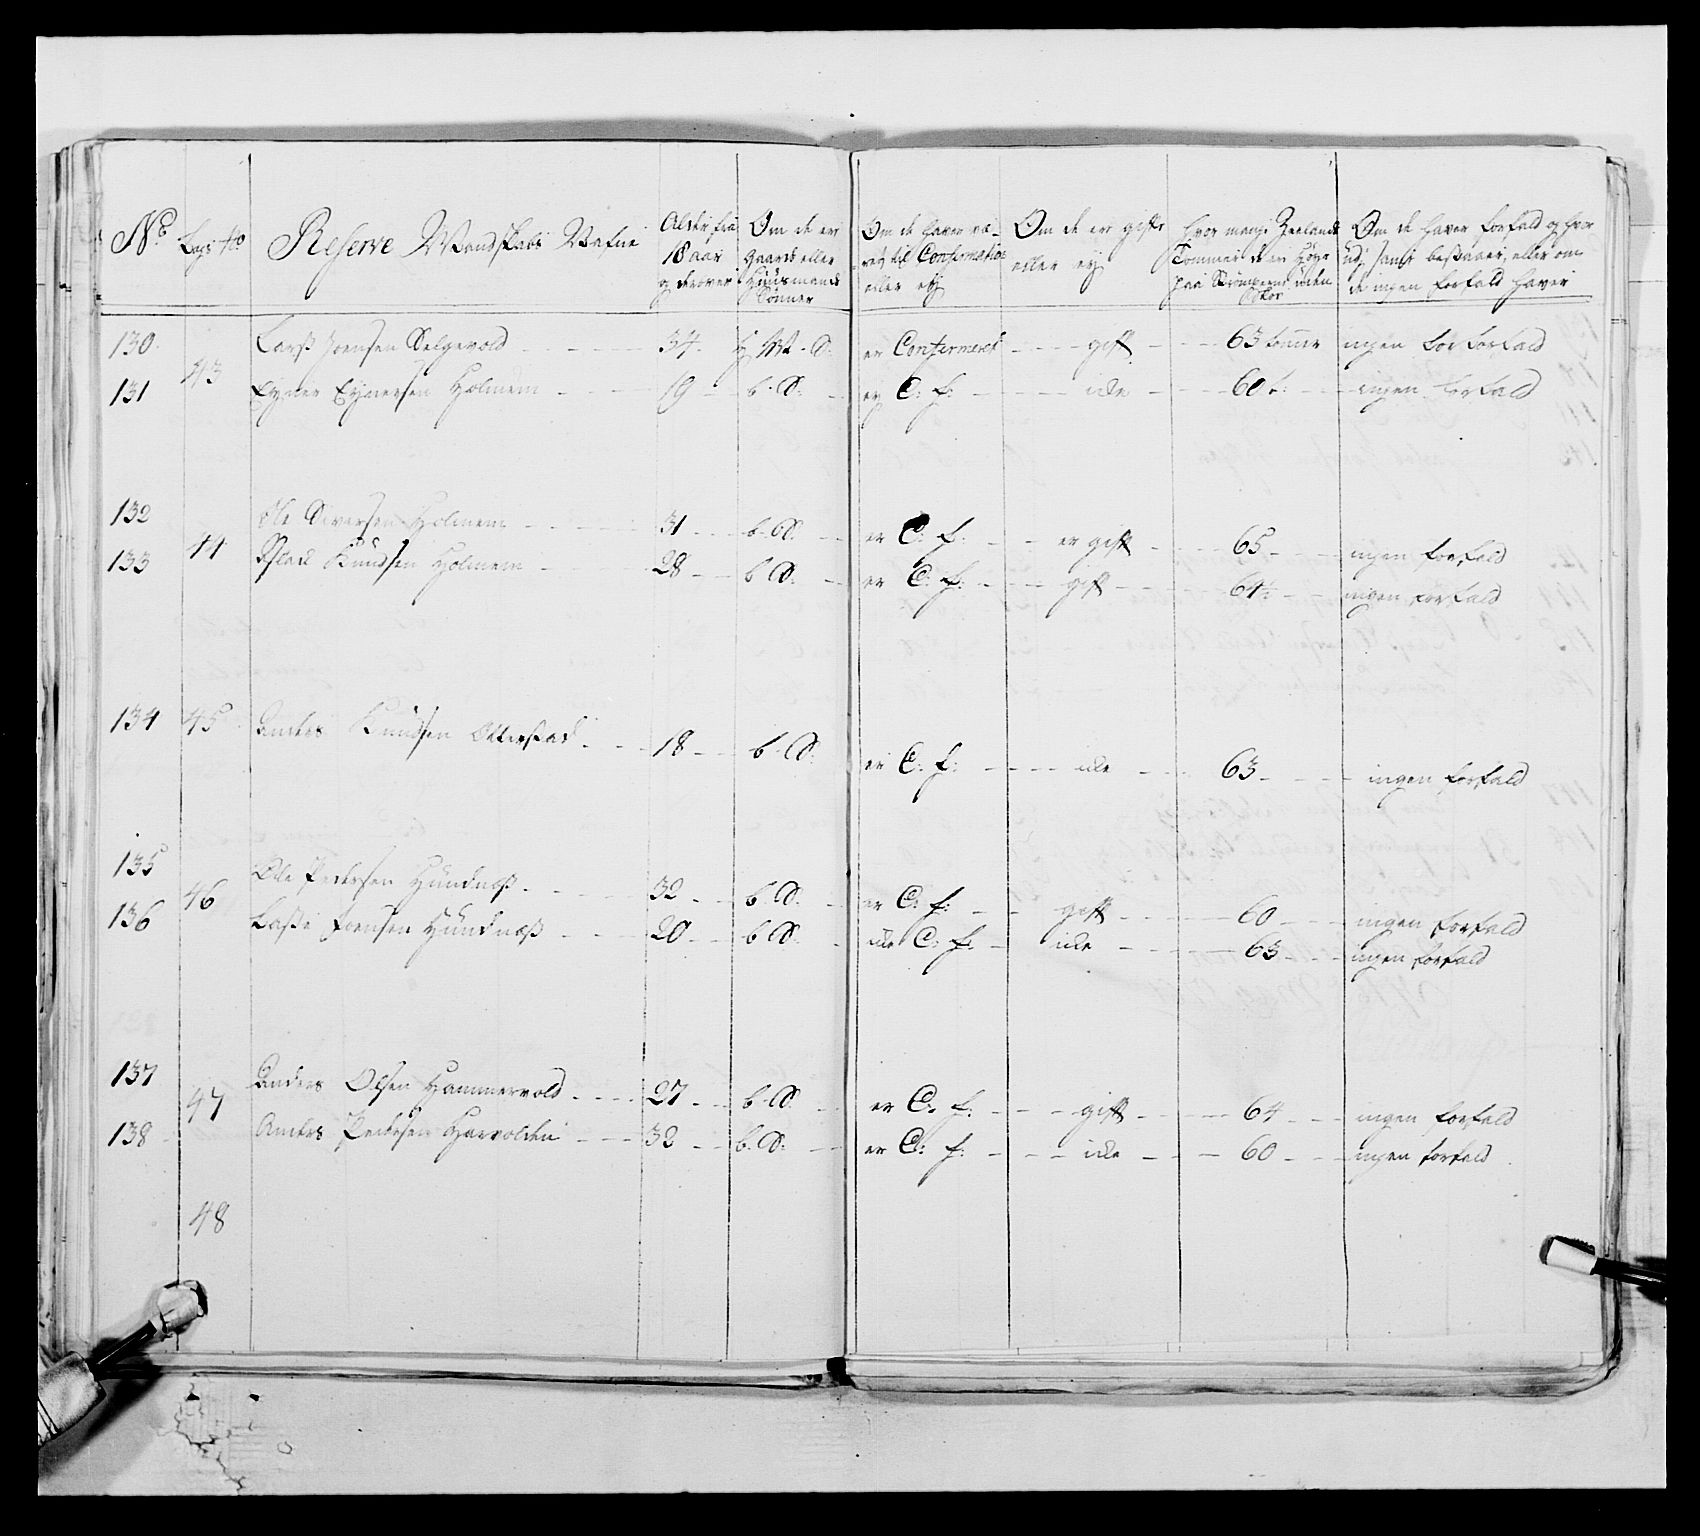 No. Lægs No Reserve Mandskabs Nafne Alder fra 18 aar og derover Om de er Gaards eller Huusmænds Sønner Om de haver været til Confirmation eller ey Om de er gifte eller ey hvor mange Zeelands Tommer de er Høye paa Strømperne uden Skoe Om de haver forfald og hvor udj samt bestaaer, eller om de ingen forfald haver
130. 43 Larss Joensen Selgevold 34. H M. S: er Confirmeret gift 63 tomer ingen forfald
131 Eyner Eynersen Holmem 19 b. S: er C: f: icke 60 t: ingen forfald
132 44 Ole Siversen Holmem 31 b. S: er C: f: er gift 65 ingen forfald
133 Knudsen Holmem 28 b S: er C: f: gift 64½ ingen forfald
134 45 Anders Knudsen Otterstad 18 b. S: er C: f: icke 63 ingen forfald
135 46 Ole Pedersen Hundnæss 32 b. S. er C: f: gift 60 ingen forfald
136 Lasse Joensen Hundnæss 20 b S. icke C: f: icke 63 ingen forfald
137 47 Anders Olsen Hammervold 27 b. S. er C: f: gift 64 ingen forfald
138 Anders Pedersen Harvolden 32 b. S: er C: f: icke 60 ingen forfald
48